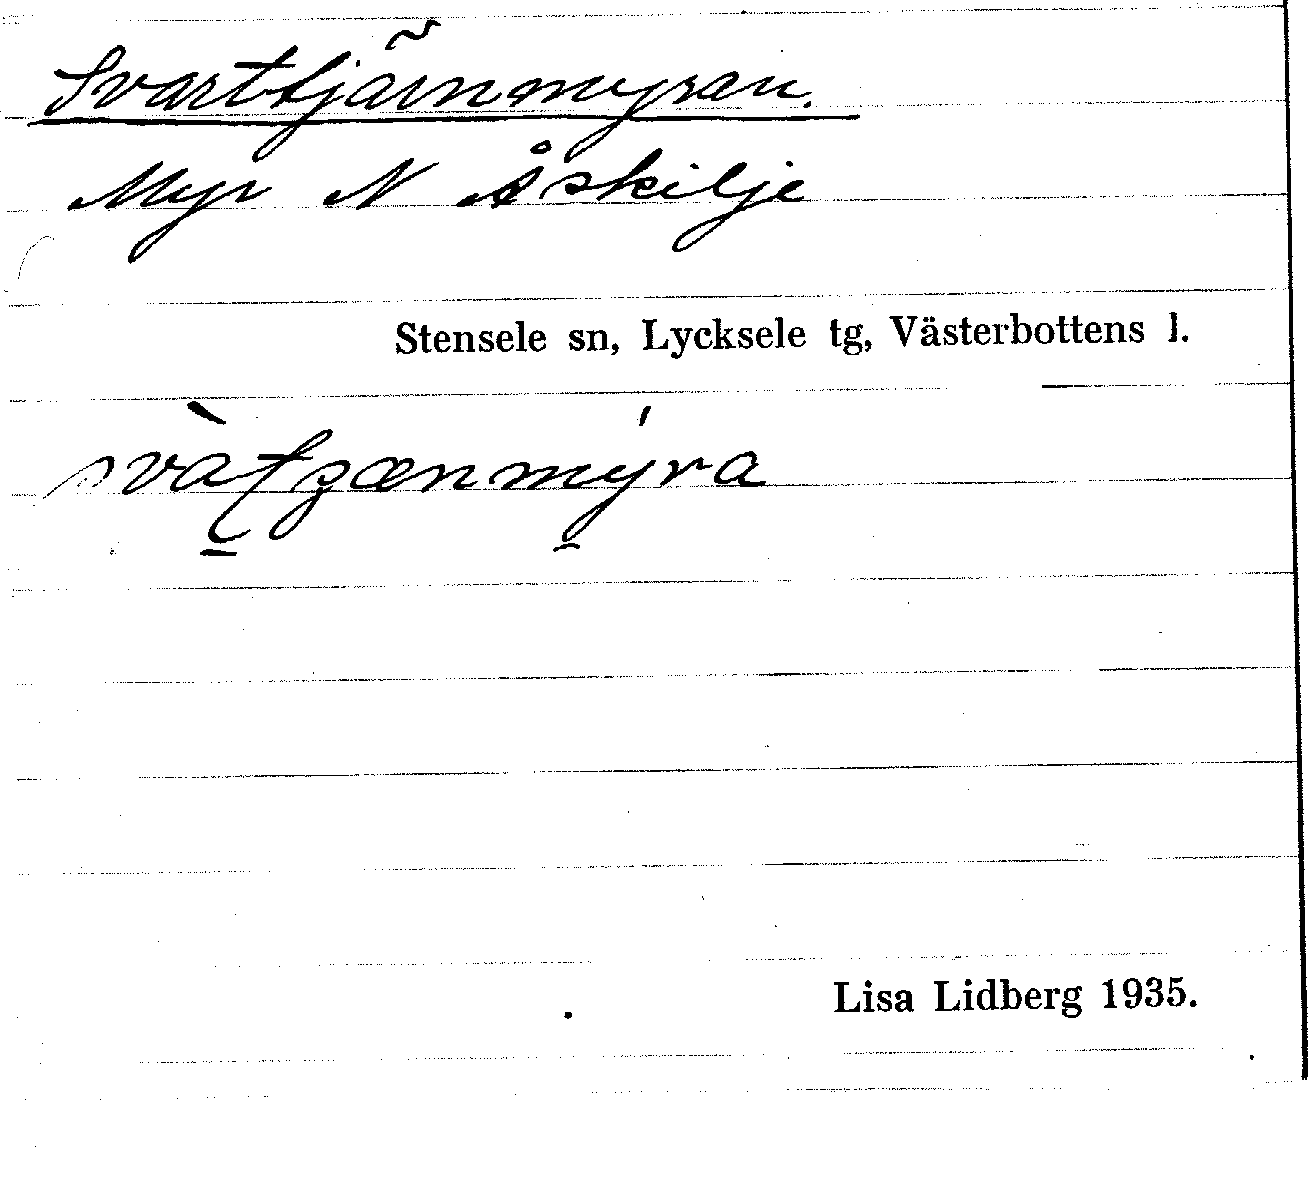 Svarttjärnmyran.
Myr N Åskilje
Stensele sn, Lycksele tg, Västerbottens l.
svàtʒænmýra
Lisa Lidberg 1935.